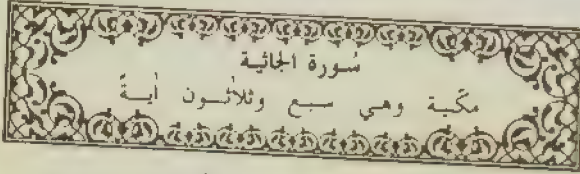 سُورة الجاثية
مكّية وهي سبع وثلاثُـون أيـةً